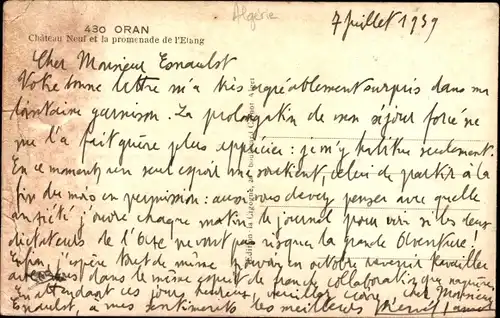 430 ORAN
Château Neuf et la promenade de l'Etang
Algérie
7 Juillet 1939
Cher Monsieur Esnault
Votre bonne lettre m'a très agréablement surpris dans ma
lointaine garnison. La prolongation de mon séjour forcé ne
me l'a fait guère plus apprécier : je m'y habitue seulement.
En ce moment un seul espoir me soutient, celui de partir à la
fin du mois en permission : aussi vous devez penser avec quelle
anxiété j'ouvre chaque matin le journal pour voir si les deux
dictateurs de l'Axe ne vont pas risquer la grande Aventure.
Enfin j'espère tout de même pouvoir en octobre revenir travailler
avec vous dans le même esprit de franche collaboration que naguère
En attendant ces jours heureux veuillez croire cher Monsieur
Esnault, à mes sentiments les meilleurs